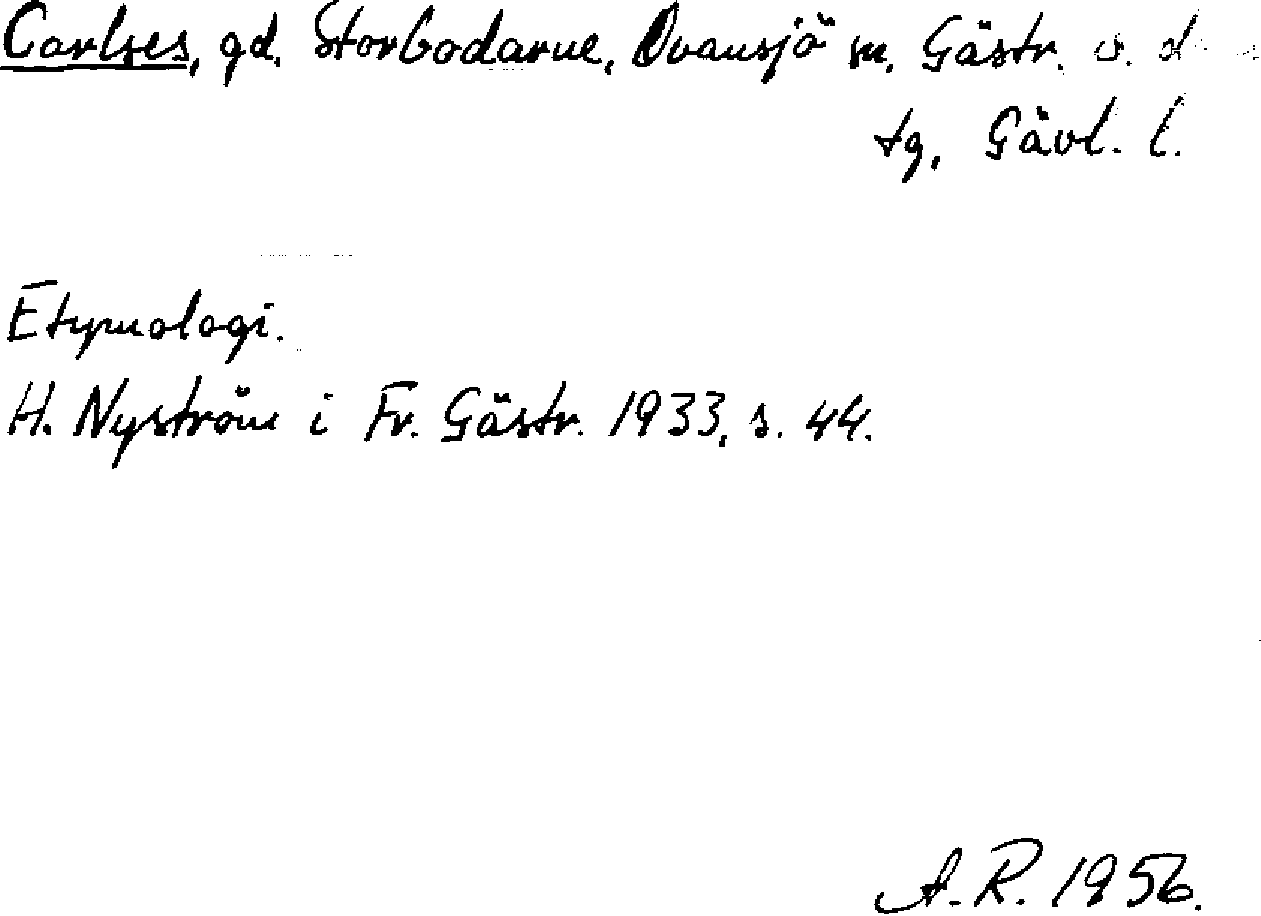 Carlses, gd. Storbodarne, Ovansjö sn. Gästr. v. d
tg, Gävl. l.
Etymologi.
H. Nyström i Fr. Gästr. 1933, s. 44.
A.R. 1956.